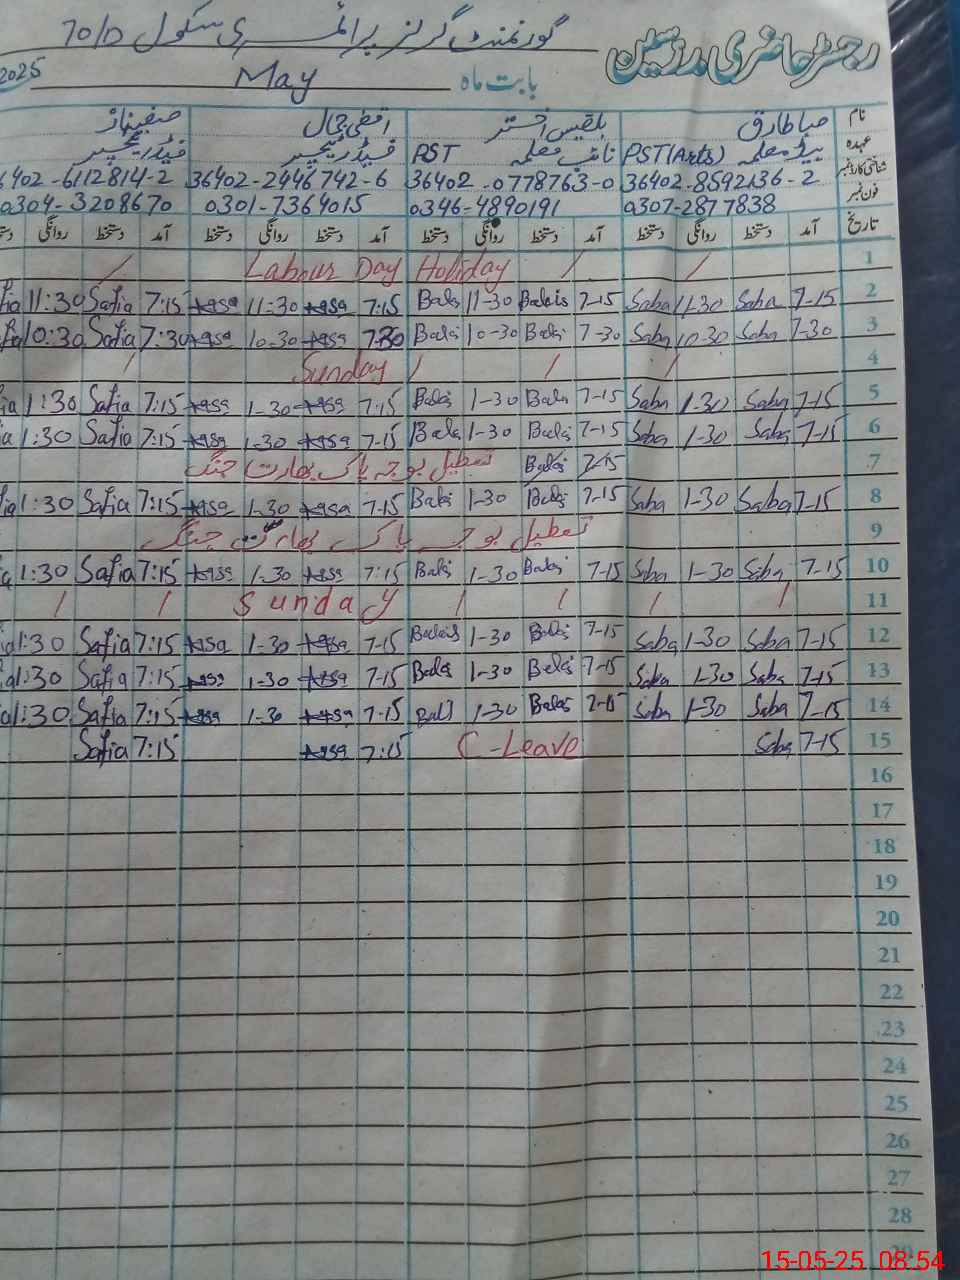 رجسٹر حاضری مدرسین
گورنمنٹ گرلز پرائمری سکول 70/D
بابت ماہ May 2025
نام صبا طارق بلقیس اختر اقصیٰ جمال
عہدہ ہیڈ معلمہ PST(Arts) نائب معلمہ PST فیڈر ٹیچر فیڈر ٹیچر
شناختی کارڈ نمبر 36402-8592136-2 36402-0778763-0 36402-2446742-6 6402-6112814-2
فون نمبر 0307-2877838 0346-4890191 0301-7364015 0304-3208670
تاریخ آمد دستخط روانگی دستخط آمد دستخط روانگی دستخط آمد دستخط روانگی دستخط آمد دستخط روانگی
1 Labour Day Holiday
2 7-15 Saba 11-30 Saba 7-15 Balqis 11-30 Balqis 7:15 Aqsa 11-30 Aqsa 7:15 Safia 11:30
3 7-30 Saba 10-30 Saba 7-30 Balqis 10-30 Balqis 7:30 Aqsa 10-30 Aqsa 7:30 Safia 10:30
4 Sunday
5 7-15 Saba 1-30 Saba 7-15 Balqis 1-30 Balqis 7:15 Aqsa 1-30 Aqsa 7:15 Safia 1:30
6 7-15 Saba 1-30 Saba 7-15 Balqis 1-30 Balqis 7-15 Aqsa 1-30 Aqsa 7:15 Safia 1:30
7 7-15 Balqis تعطیل بوجہ پاک بھارت جنگ
8 7-15 Saba 1-30 Saba 7-15 Balqis 1-30 Balqis 7-15 Aqsa 1-30 Aqsa 7:15 Safia 1:30
9 تعطیل بوجہ پاک بھارت جنگ
10 7-15 Saba 1-30 Saba 7-15 Balqis 1-30 Balqis 7:15 Aqsa 1-30 Aqsa 7:15 Safia 1:30
11 Sunday
12 7-15 Saba 1-30 Saba 7-15 Balqis 1-30 Balqis 7-15 Aqsa 1-30 Aqsa 7:15 Safia 1:30
13 7-15 Saba 1-30 Saba 7-15 Balqis 1-30 Balqis 7-15 Aqsa 1-30 Aqsa 7:15 Safia 1:30
14 7-15 Saba 1-30 Saba 7-15 Balqis 1-30 Balqis 7-15 Aqsa 1-30 Aqsa 7:15 Safia 1:30
15 7-15 Saba C-Leave 7:15 Aqsa 7:15 Safia
16
17
18
19
20
21
22
23
24
25
26
27
28
29
15-05-25 08:54